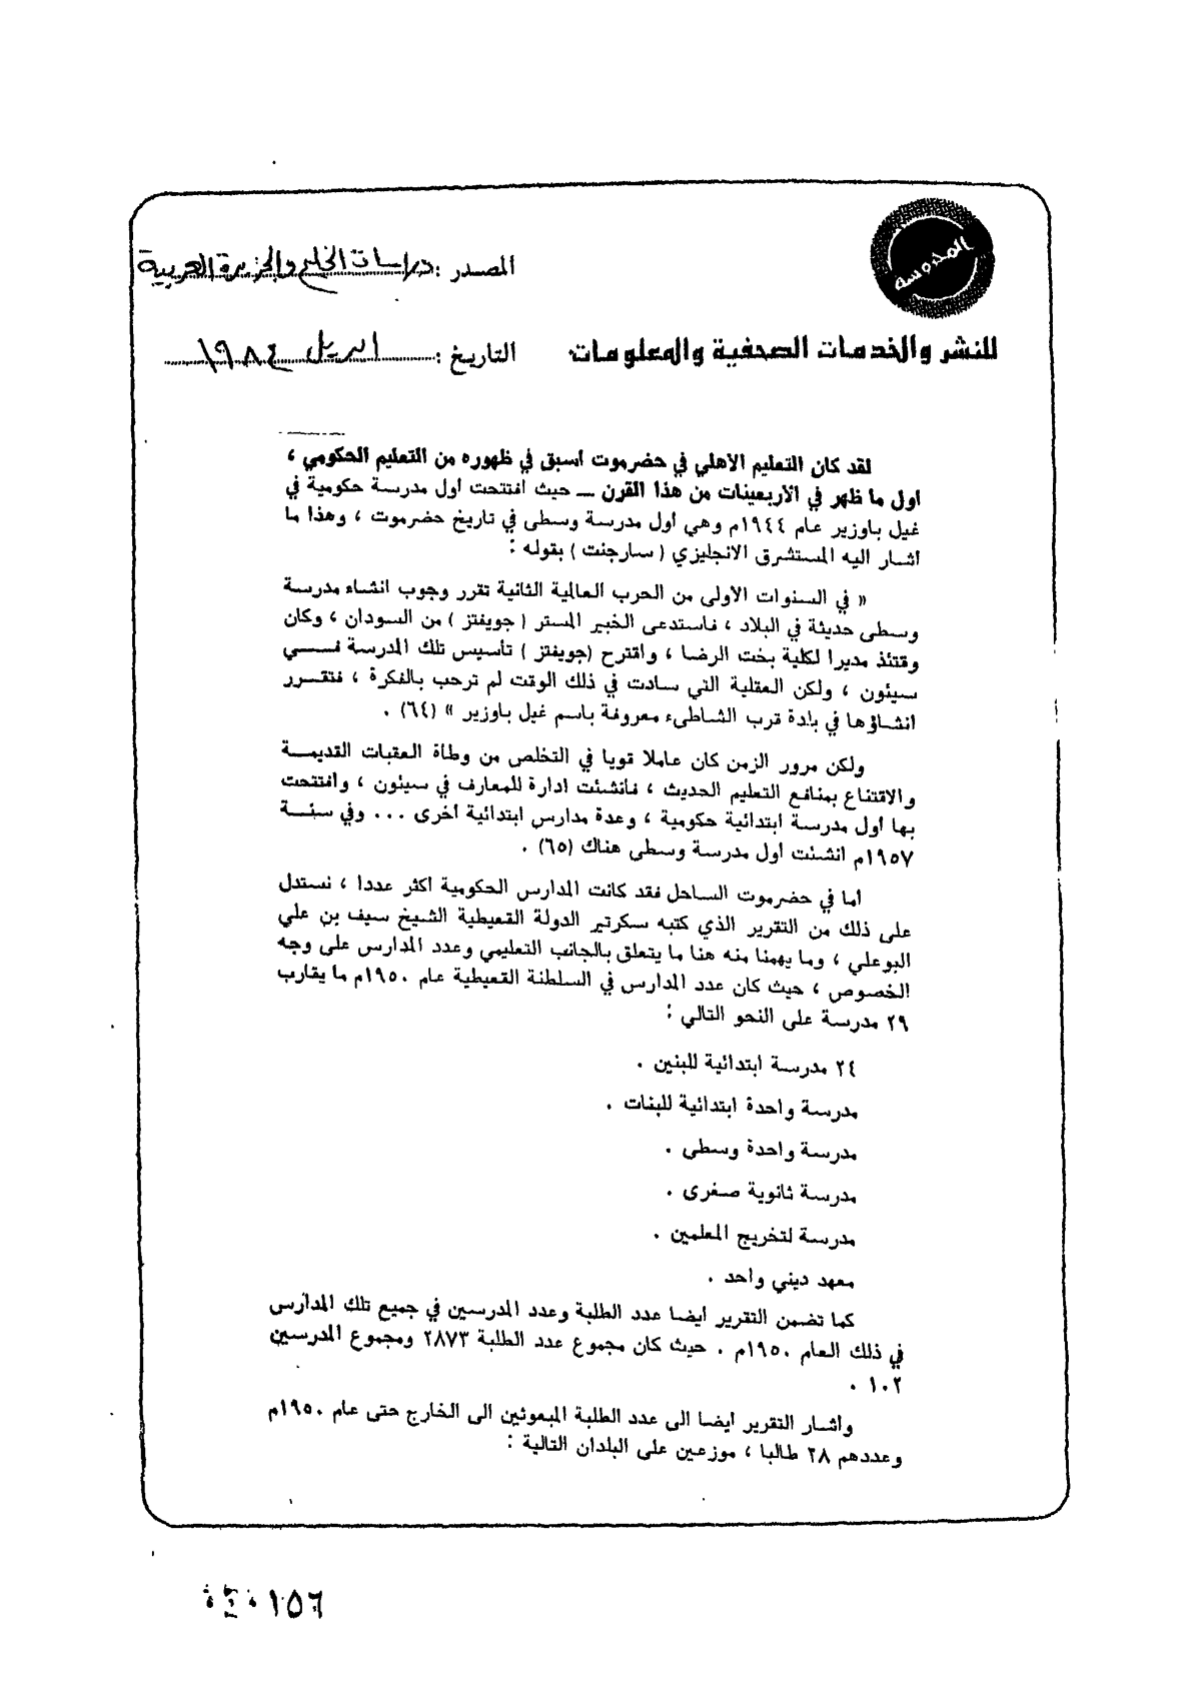 المحروسة
للنشر والخدمات الصحفية والمعلومات
المصدر : دراسات الخليج والجزيرة العربية
التاريخ : ابريل ١٩٨٤
لقد كان التعليم الاهلي في حضرموت اسبق في ظهوره من التعليم الحكومي ،
اول ما ظهر في الأربعينات من هذا القرن ــ حيث افتتحت اول مدرسة حكومية في
غيل باوزير عام ١٩٤٤م وهي أول مدرسة وسطى في تاريخ حضرموت ، وهذا ما
اشار اليه المستشرق الانجليزي ( سارجنت ) بقوله :
« في السنوات الأولى من الحرب العالمية الثانية تقرر وجوب انشاء مدرسة
وسطى حديثة في البلاد ، فاستدعى الخبير المستر ( جويفتز ) من السودان ، وكان
وقتئذ مديرا لكلية بخت الرضا ، واقترح (جويفتز ) تأسيس تلك المدرسة فــــي
سيئون ، ولكن العقلية التي سادت في ذلك الوقت لم ترحب بالفكرة ، فتقـــرر
انشاؤها في بلدة قرب الشاطىء معروفة باسم غيل باوزير » (٦٤) .
ولكن مرور الزمن كان عاملا قويا في التخلص من وطأة العقبات القديمـــة
والاقتناع بمنافع التعليم الحديث ، فأنشئت ادارة للمعارف في سيئون ، وافتتحت
بها أول مدرسة ابتدائية حكومية ، وعدة مدارس ابتدائية أخرى ... وفي سنـــة
١٩٥٧م انشئت اول مدرسة وسطى هناك (٦٥) .
أما في حضرموت الساحل فقد كانت المدارس الحكومية اكثر عددا ، نستدل
على ذلك من التقرير الذي كتبه سكرتير الدولة القعيطية الشيخ سيف بن علي
البوعلي ، وما يهمنا منه هنا ما يتعلق بالجانب التعليمي وعدد المدارس على وجه
الخصوص ، حيث كان عدد المدارس في السلطنة القعيطية عام ١٩٥٠م ما يقارب
٢٩ مدرسة على النحو التالي :
٢٤ مدرسة ابتدائية للبنين .
مدرسة واحدة ابتدائية للبنات .
مدرسة واحدة وسطى .
مدرسة ثانوية صغرى .
مدرسة لتخريج المعلمين .
معهد ديني واحد .
كما تضمن التقرير ايضا عدد الطلبة وعدد المدرسين في جميع تلك المدارس
في ذلك العام ١٩٥٠م . حيث كان مجموع عدد الطلبة ٢٨٧٣ ومجموع المدرسين
١٠٢ .
وأشار التقرير ايضا الى عدد الطلبة المبعوثين الى الخارج حتى عام ١٩٥٠م
وعددهم ٢٨ طالبا ، موزعين على البلدان التالية :